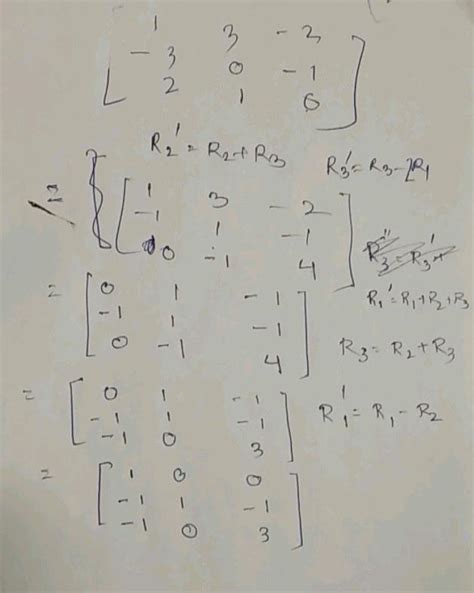 1 3 -2
-3 0 -1
2 1 6
R2' = R2 + R3 R3' = R3 - 2R1
= 1 3 -2
-1 1 -1
0 -1 4
R1' = R1 + R2 + R3
= 0 1 -1
-1 1 -1
0 -1 4
R3 = R2 + R3
= 0 1 -1
-1 1 -1
-1 0 3
R1' = R1 - R2
= 1 0 0
-1 1 -1
-1 0 3